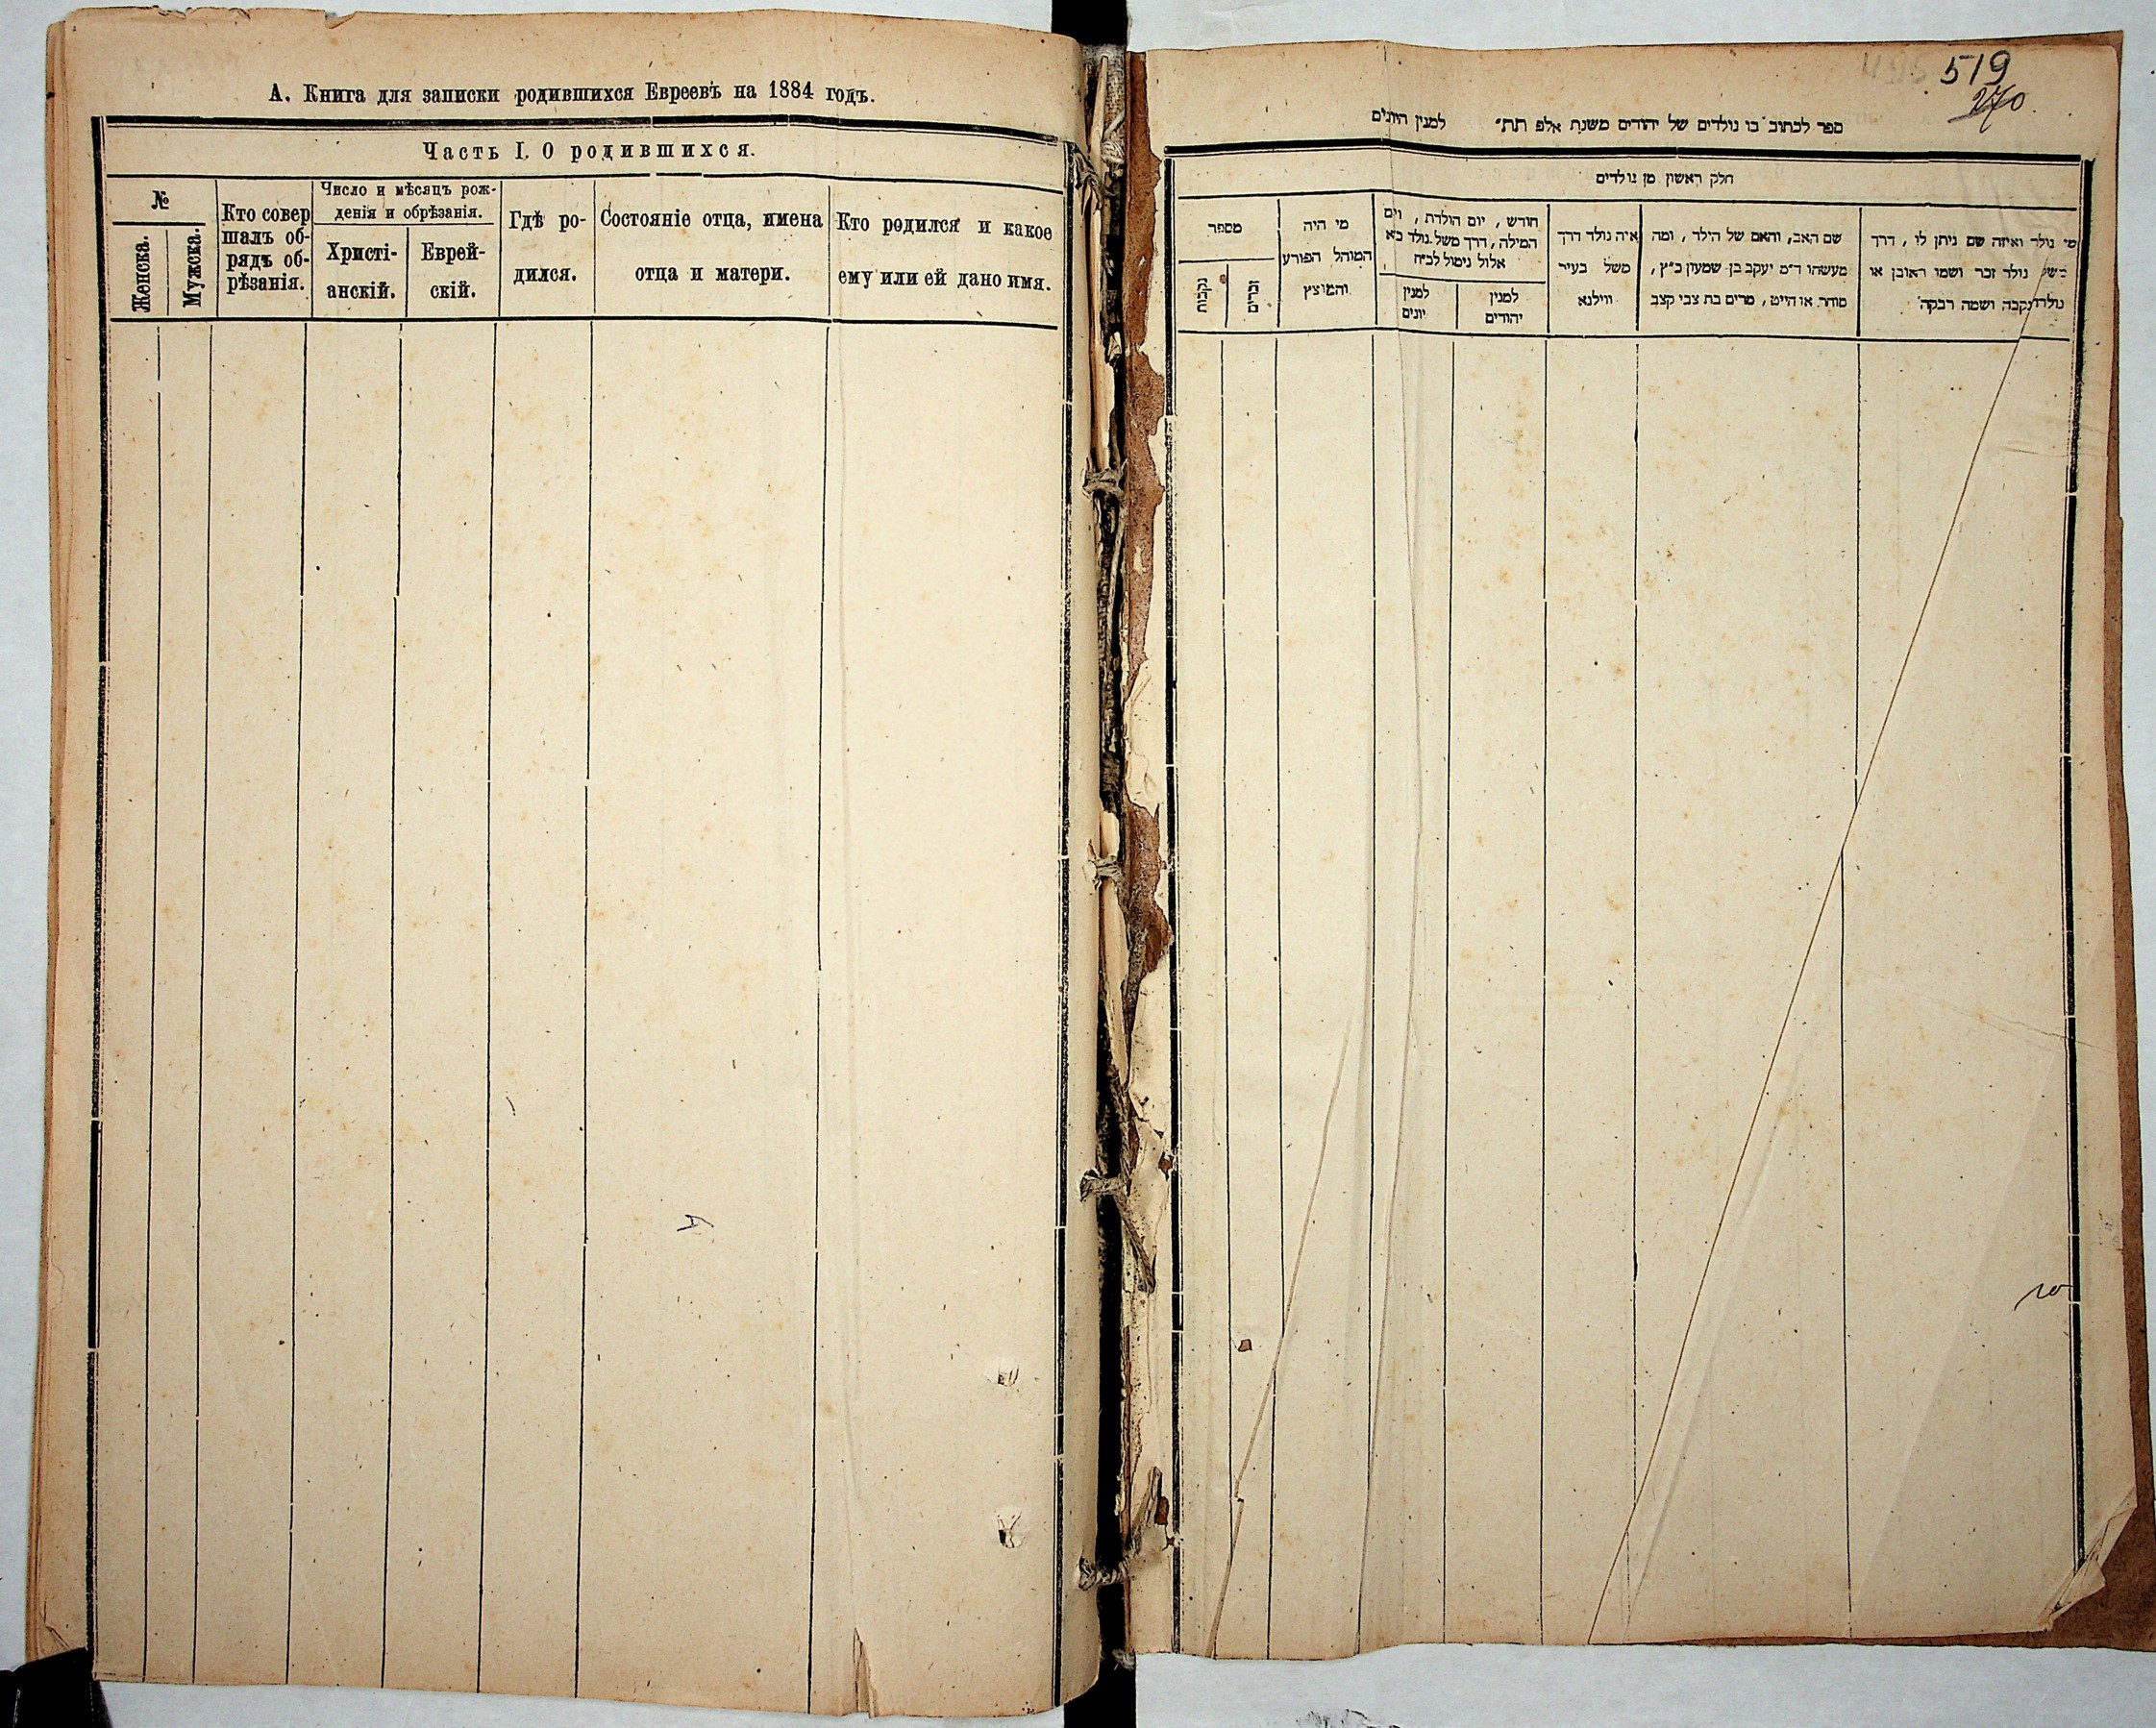 А. Книга для записки родившихся Евреевъ на 1884 годъ.
Часть I. О родившихся.
№
Женска.
Мужска.
Кто совер
шалъ об-
рядъ об-
рѣзанія.
Число и мѣсяцъ рож-
денія и обрѣзанія.
Христі-
анскій.
Еврей-
скій.
Гдѣ ро-
дился.
Состояніе отца, имена
отца и матери.
Кто родился и какое
ему или ей дано имя.
519
270
ספר לכתוב בו נולדים של יהודים משנת אלפ תת״ למנין היונים
חלק ראשון מן נולדים
מי נולד ואיזה שם ניתן לו, דרך
משל נולד זכר ושמו ראובן או
נולדו נקבה ושמה רבקה
שם האב, והאם של הילד, ומה
מעשהו ד״מ יעקב בן שמעון כ״ץ,
סוחר או חייט, מרים בת צבי קצב
איה נולד דרך
משל בעיר
ווילנא
חודש, יום הולדת, ויום
המילה, דרך משל נולד כ״א
אלול נימול לכ״ח
למנין
יהודים
למנין
יונים
מי היה
המוהל הפורע
והמוצץ
מספר
זכרים
נקבות